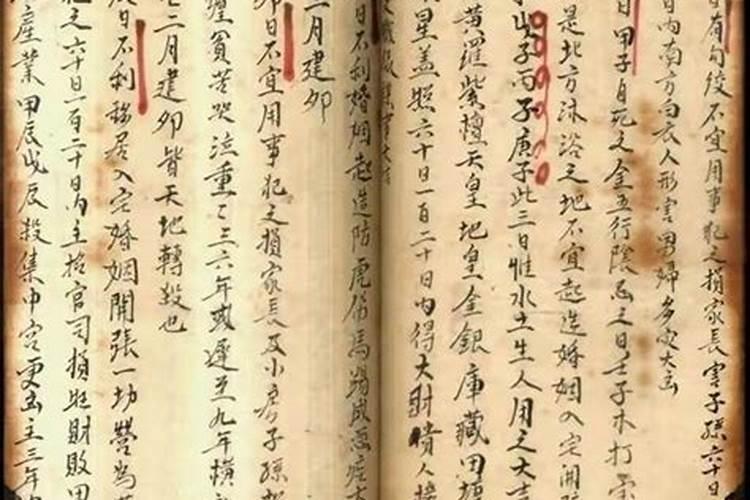 日有勾絞不宜用事犯之損家長害子孫六十日
日內南方白衣人形害男婦多灾大凶
日甲子自死之金五行陰忌之日壬子木打
是北方沐浴之地不宜起造婚姻入宅開
子戊子丙子庚子此三日惟水土生人用之大吉
黃羅紫檀天皇地皇金銀庫藏田塘
星蓋照六十日一百二十日內得大財貴人接
日不利婚姻起造防虎傷馬踢成惡疾大
二月建卯
卯日不宜用事犯之損家長及小房子孫
纏貧苦哭泣重重三六年或遲至九年橫
七二月建卯皆天地轉殺也
戌日不利移居入宅婚姻開張一切營為
犯之六十日一百二十日內主招官司損胎財敗田
產業甲辰戊辰殺集中宮更凶主三年內